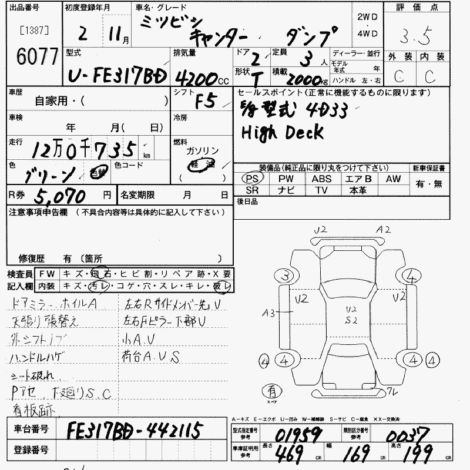 出品番号 初度登録年月 車名・グレード 2WD 4WD 評価点
[1387] 2 11月 ミツビシ キャンター ダンプ 3.5
6077
型式 排気量 ドア 2 定員 3人 ディーラー・並行 外装 内装
U-FE317BD 4200CC 形状 T 積載 2000kg モデル年式 年 ハンドル 左・右 C C
車歴 シフト セールスポイント(正常に機能するものに限ります)
自家用・( ) F5 型式 4D33
車検 冷房 High Deck
年 月( )
走行 燃料
12万0千735km ガソリン 軽油
色 色コード 装備品(純正品に限り丸をつけて下さい) 新車保証書
グリーン PS PW ABS エアB AW 有・無
SR ナビ TV 本革
R券 5,070円 名変期限 月 日 後日品
注意事項申告欄(不具合内容等は具体的に記入して下さい)
修復歴 有(箇所 )
検査員 FW キズ・飛石・ヒビ割・リペア跡・X要
記入欄 内装 キズ・汚レ・コゲ・穴・スレ・キレ・破レ
ドアミラーホイルA 左右Rサイドメンバー先U
天張り張替え 左右Fピラー下部U
外シフトノブ 小A.U
ハンドルハゲ 荷台A.U.S
シート破れ
Pアセ 下廻りS.C
看板跡
U2 A2
3 3
U2 U2
A3 U2 S2
4 4 4 4
有
A-キズ E-エクボ U-凹み W-補修跡 S-サビ C-腐食 XX-交換済
車台番号 FE317BD-442115
型式指定番号 参考 01959 類別区分番号 参考 0037
登録番号
車庫証明用 参考 長さ 469cm 幅 169cm 高さ 199cm